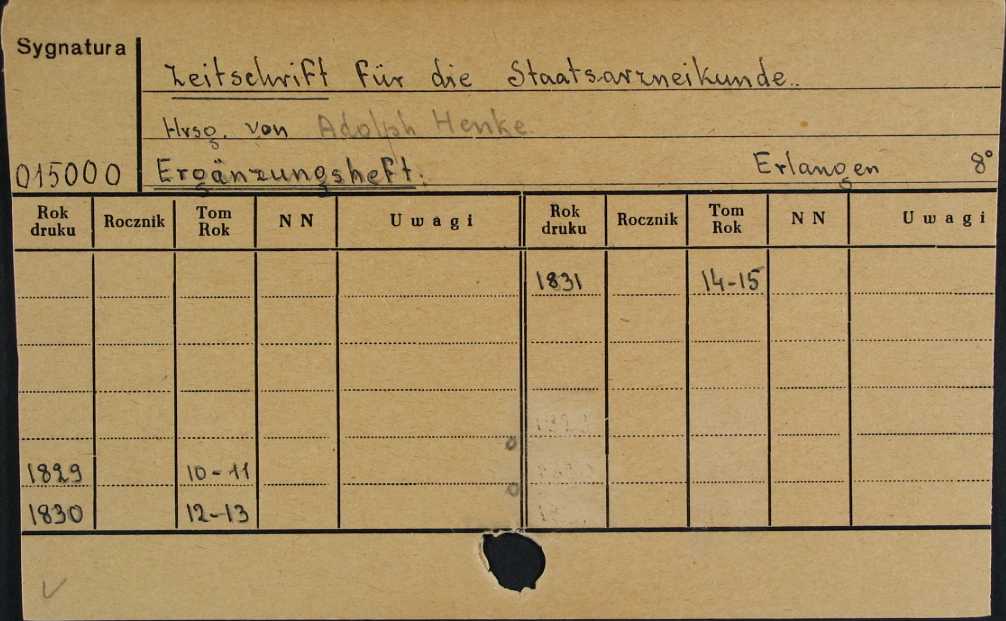 Sygnatura
Zeitschrift für die Staatsarzneikunde.
Hrsg. von Adolph Henke
015000 Ergänzungsheft. Erlangen 8°
Rok druku Rocznik Tom Rok NN Uwagi Rok druku Rocznik Tom Rok NN Uwagi
1831 14-15
1829 10-11
1830 12-13